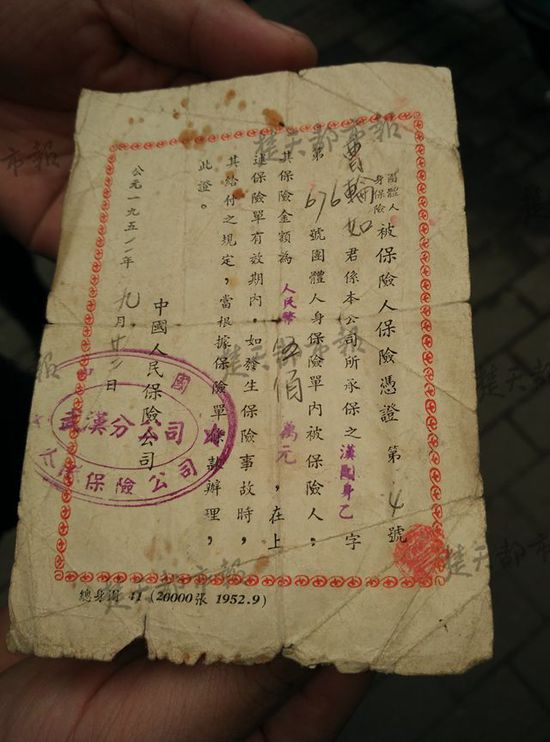 團體人身保險 被保險人保險憑證 第 4 號
曹輪如 君係本公司所承保之漢團身乙字
第 676 號團體人身保險單內被保險人,
其保險金額為人民幣伍佰萬元,在上
述保險單有效期內,如發生保險事故時,
其給付之規定,當根據保險單條款辦理,
此證。
中國人民保險公司
公元一九五二年 九月廿二日
武漢分公司
保險公司
總身團 41 (20000張 1952.9)
楚天都市報
楚天都市報
楚天都市報
楚天都市報
市報